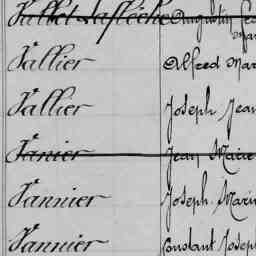 Augustin
Vallier Alfred Mar
Vallier Joseph Jean
Tanier Jean Marie
Tannier Joseph Marie
Tannier Constant Joseph